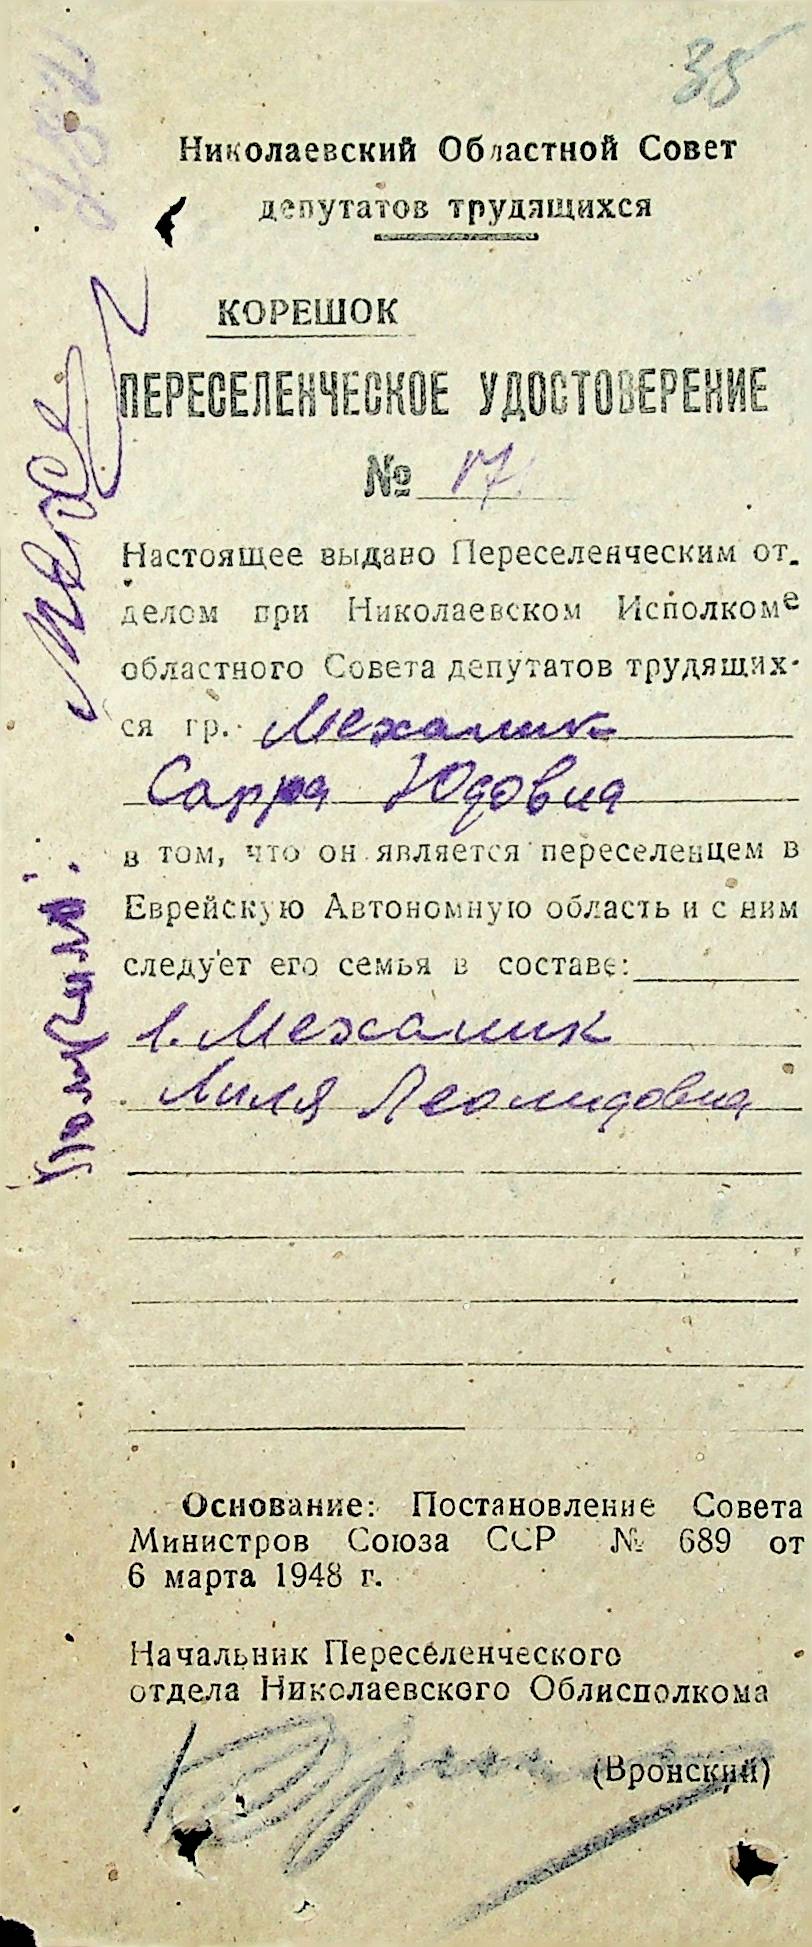 35
Николаевский Областной Совет
депутатов трудящихся
КОРЕШОК
ПЕРЕСЕЛЕНЧЕСКОЕ УДОСТОВЕРЕНИЕ
№ 17
Настоящее выдано Переселенческим от-
делом при Николаевском Исполкоме
областного Совета депутатов трудящих-
ся гр. Механик
Сарра Юдовна
в том, что он является переселенцем в
Еврейскую Автономную область и с ним
следует его семья в составе:
1. Механик
Лиля Леонидовна
Основание: Постановление Совета
Министров Союза ССР № 689 от
6 марта 1948 г.
Начальник Переселенческого
отдела Николаевского Облисполкома
(Вронский)